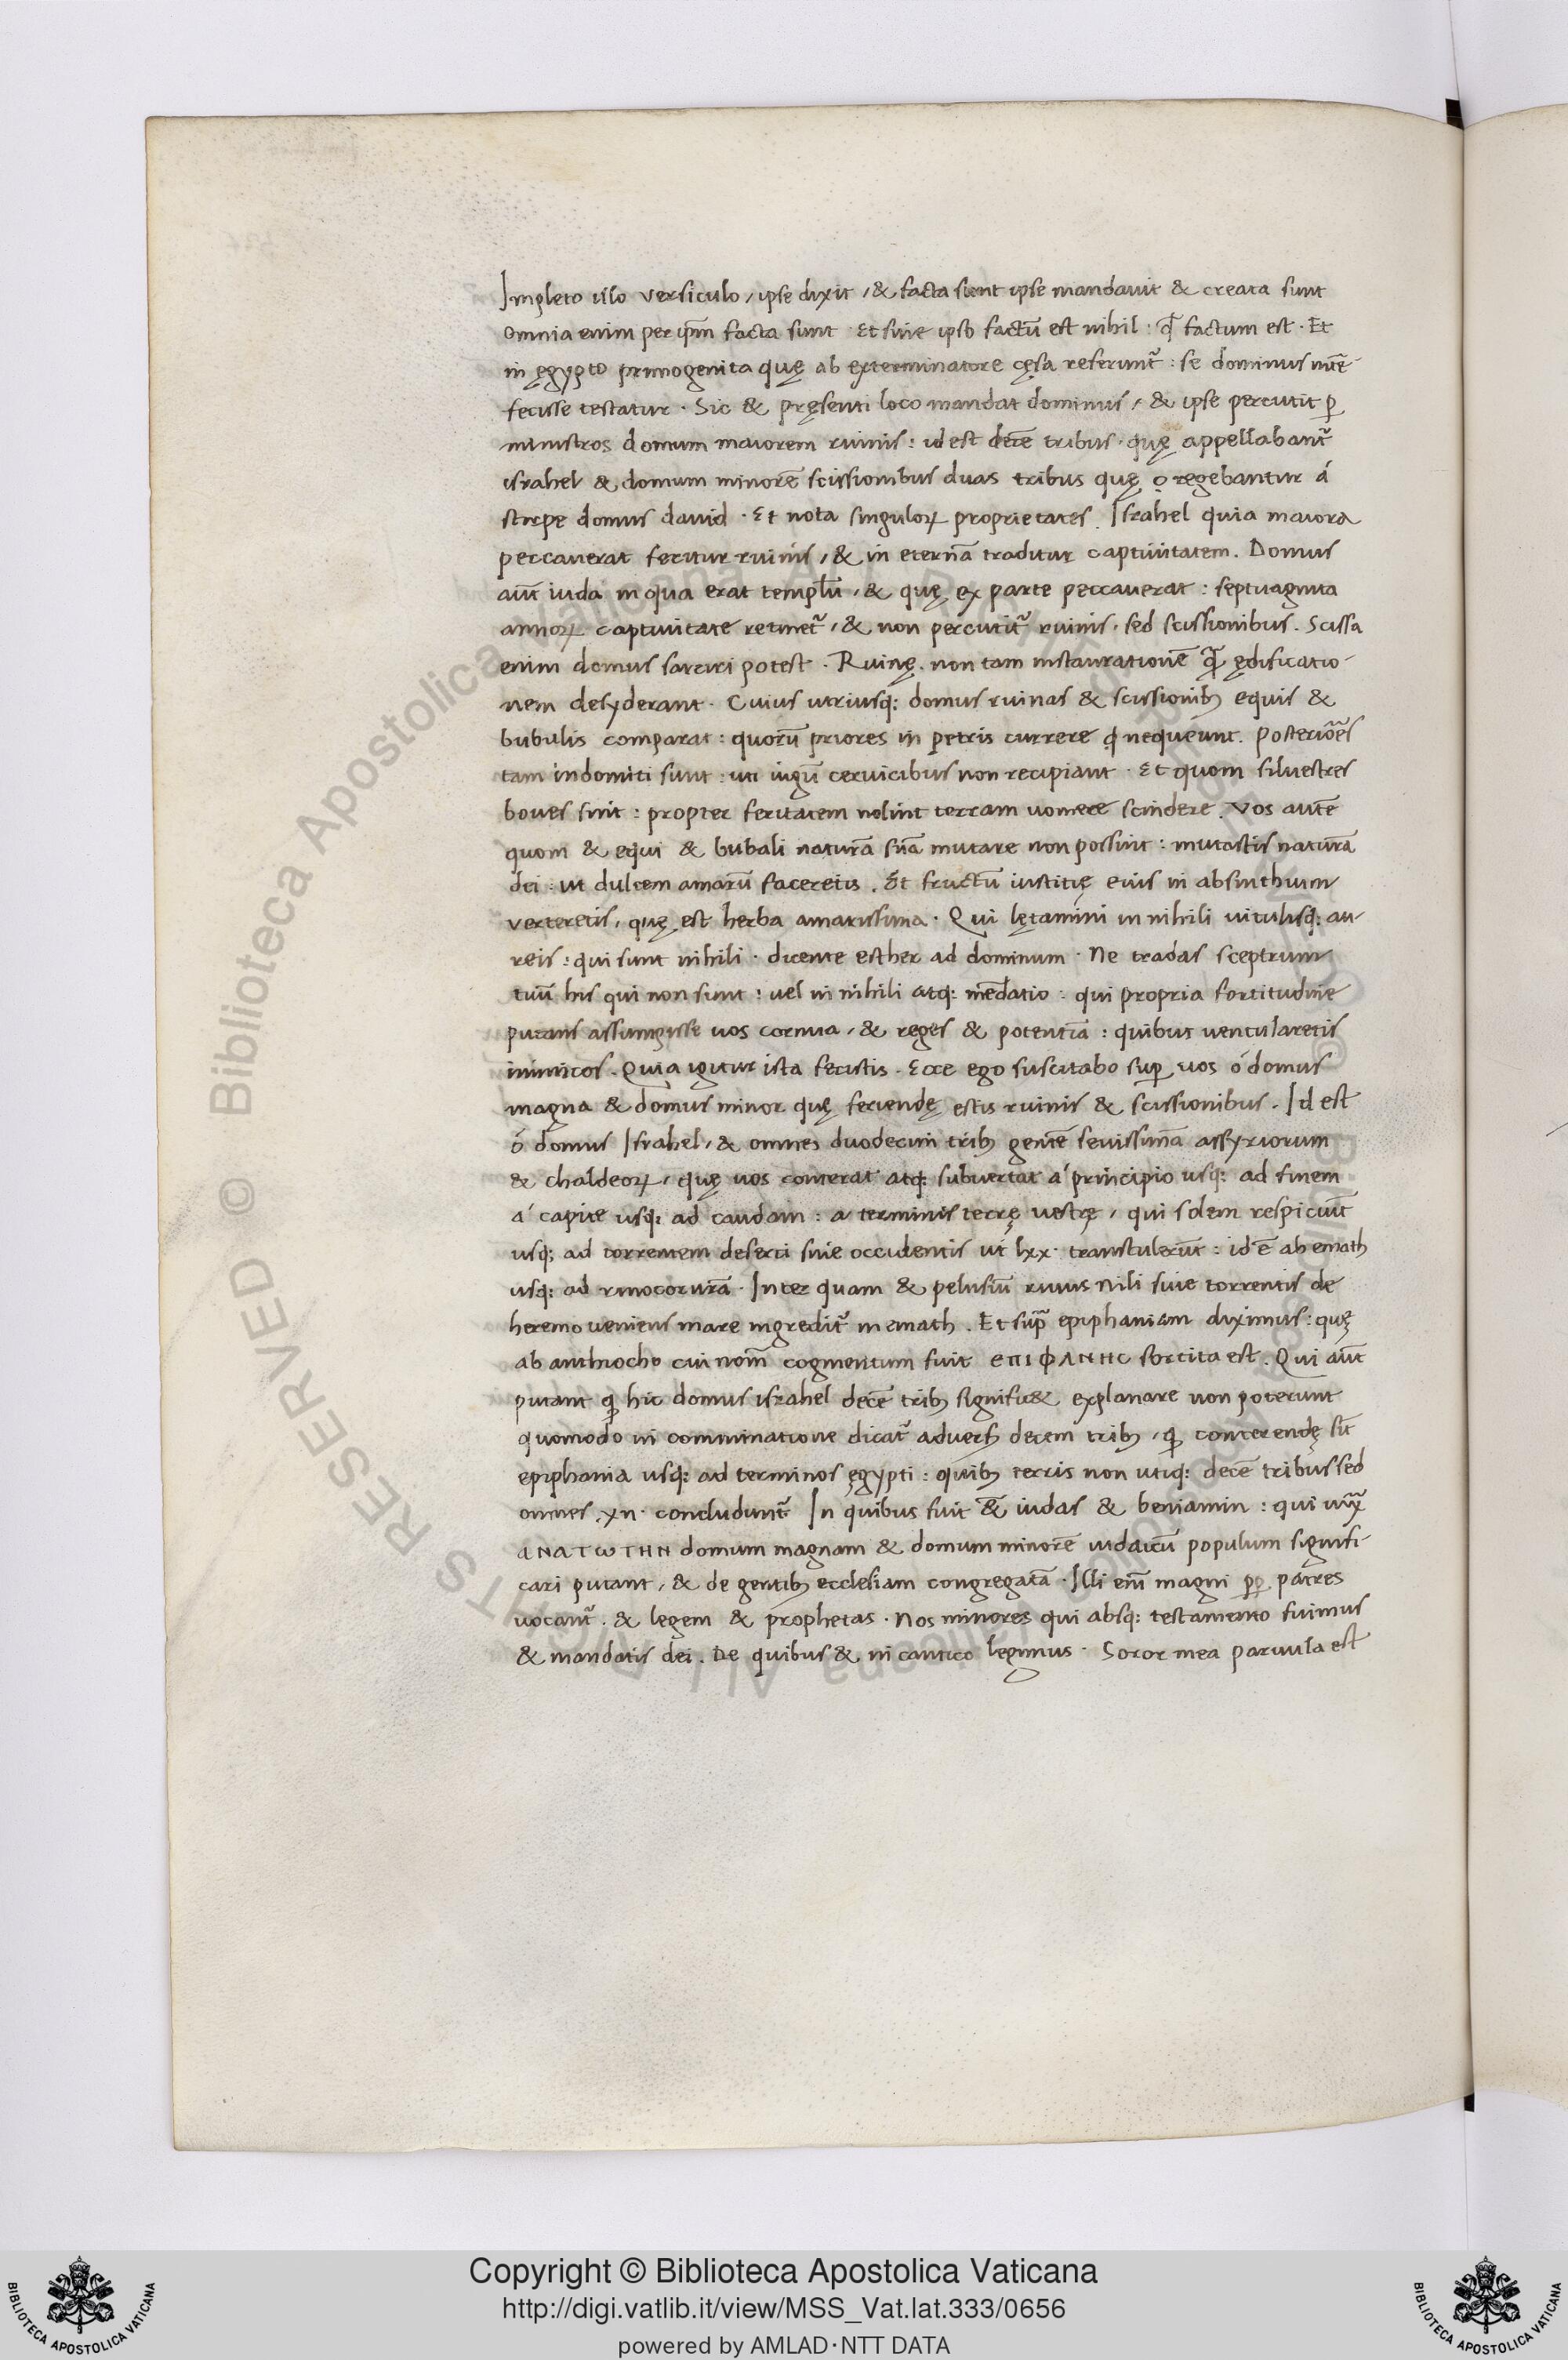 Impleto illo versiculo / ipse dixit / & facta sunt ipse mandavit & creata sunt
omnia enim per ip̄m facta sunt · Et sine ipso factū est nihil : q̄ factum est · Et
in ęgypto primogenita quę ab exterminatore cęsa referunt᷑ : se dominus intē-
fecisse testatur · Sic & pręsenti loco mandat dominus / & ipse percutit ꝑ
ministros domum maiorem ruinis : id est decē tribus · quę appellabant᷑
israhel & domum minorē scissionibus duas tribus quę regebantur á
stirpe domus david · Et nota singuloꝝ proprietates . Israhel quia maiora
peccauerat feritur ruinis / & in eternā traditur captiuitatem . Domus
aūt iuda in qua erat templū / & quę ex parte peccauerat : septuaginta
annoꝝ captiuitate retinet᷑ / & non percutit᷑ ruinis / sed scissionibus . Scissa
enim domus sarciri potest . Ruinę . non tam instaurationē q̄ ędificatio-
nem desyderant · Cuius utriusq; domus ruinas & scissionibꝫ equis &
bubulis comparat : quorū priores in petris currere nequeunt . Posteriores
tam indomiti sunt : uti iugū ceruicibus non recipiant · Et quom siluestres
boues sint : propter feritatem nolint terram uomere scindere . Vos autē
quom & equi & bubali naturā suā mutare non possint : mutastis naturā
dei : ut dulcem amarū faceretis . Et fructū iustitię eius in absinthium
verteretis / quę est herba amarissima · Qui lętamini in nihili uitulisq; au-
reis : qui sunt nihili · dicente esther ad dominum · Ne tradas sceptrum
tuū his qui non sunt : uel in nihili atq; mēdatio : qui propria fortitudine
putatis assumpsisse uos cornua / & reges & potentiā : quibus uentularetis
inimicos . Quia igitur ista fecistis · Ecce ego suscitabo suꝑ uos ó domus
magna & domus minor quę feriendę estis ruinis & scissionibus . Id est
ó domus Israhel / & omnes duodecim tribꝫ gentē seuissimā assyriorum
& chaldeoꝝ / quę uos conterat atq; subuertat á principio usq; ad finem
á capite usq; ad caudam : a terminis terrę uestrę / qui solem respiciūt
usq; ad torrentem deserti siue occidentis ut lxx · transtulerūt : id ē ab emath
usq; ad rinocorurā · Inter quam & pelusiū riuus nili siue torrentis de
heremo ueniens mare ingredit᷑ in emath . Et sup̄ epiphaniam diximus : quę
ab anthiocho cui nom̄ cogmentum fuit ΕΠΙΦΑΝΗC sortita est . Qui aūt
putant ꝙ hic domus israhel decē tribꝫ signific& explanare non poterunt
quomodo in comminatione dicat᷑ aduersꝫ decem tribꝫ / ꝙ conterendę sīt
epiphania usq; ad terminos ęgypti : quibꝫ terris non utiq; decē tribus sed
omnes xii · concludunt᷑ In quibus fuit &̄ iudas & beniamin : qui iuxᷓ
ΑΝΑΓѠΓΗΝ domum magnam & domum minorē iudaicū populum signifi-
cari putant / & de gentibꝫ ecclesiam congregatā · Illi eni᷑ magni ꝑꝑ patres
uocant᷑ . & legem & prophetas · Nos minores qui absq; testamento fuimus
& mandatis dei . De quibus & in cantico legimus · Soror mea paruula est
Copyright © Biblioteca Apostolica Vaticana
http://digi.vatlib.it/view/MSS_Vat.lat.333/0656
powered by AMLAD·NTT DATA